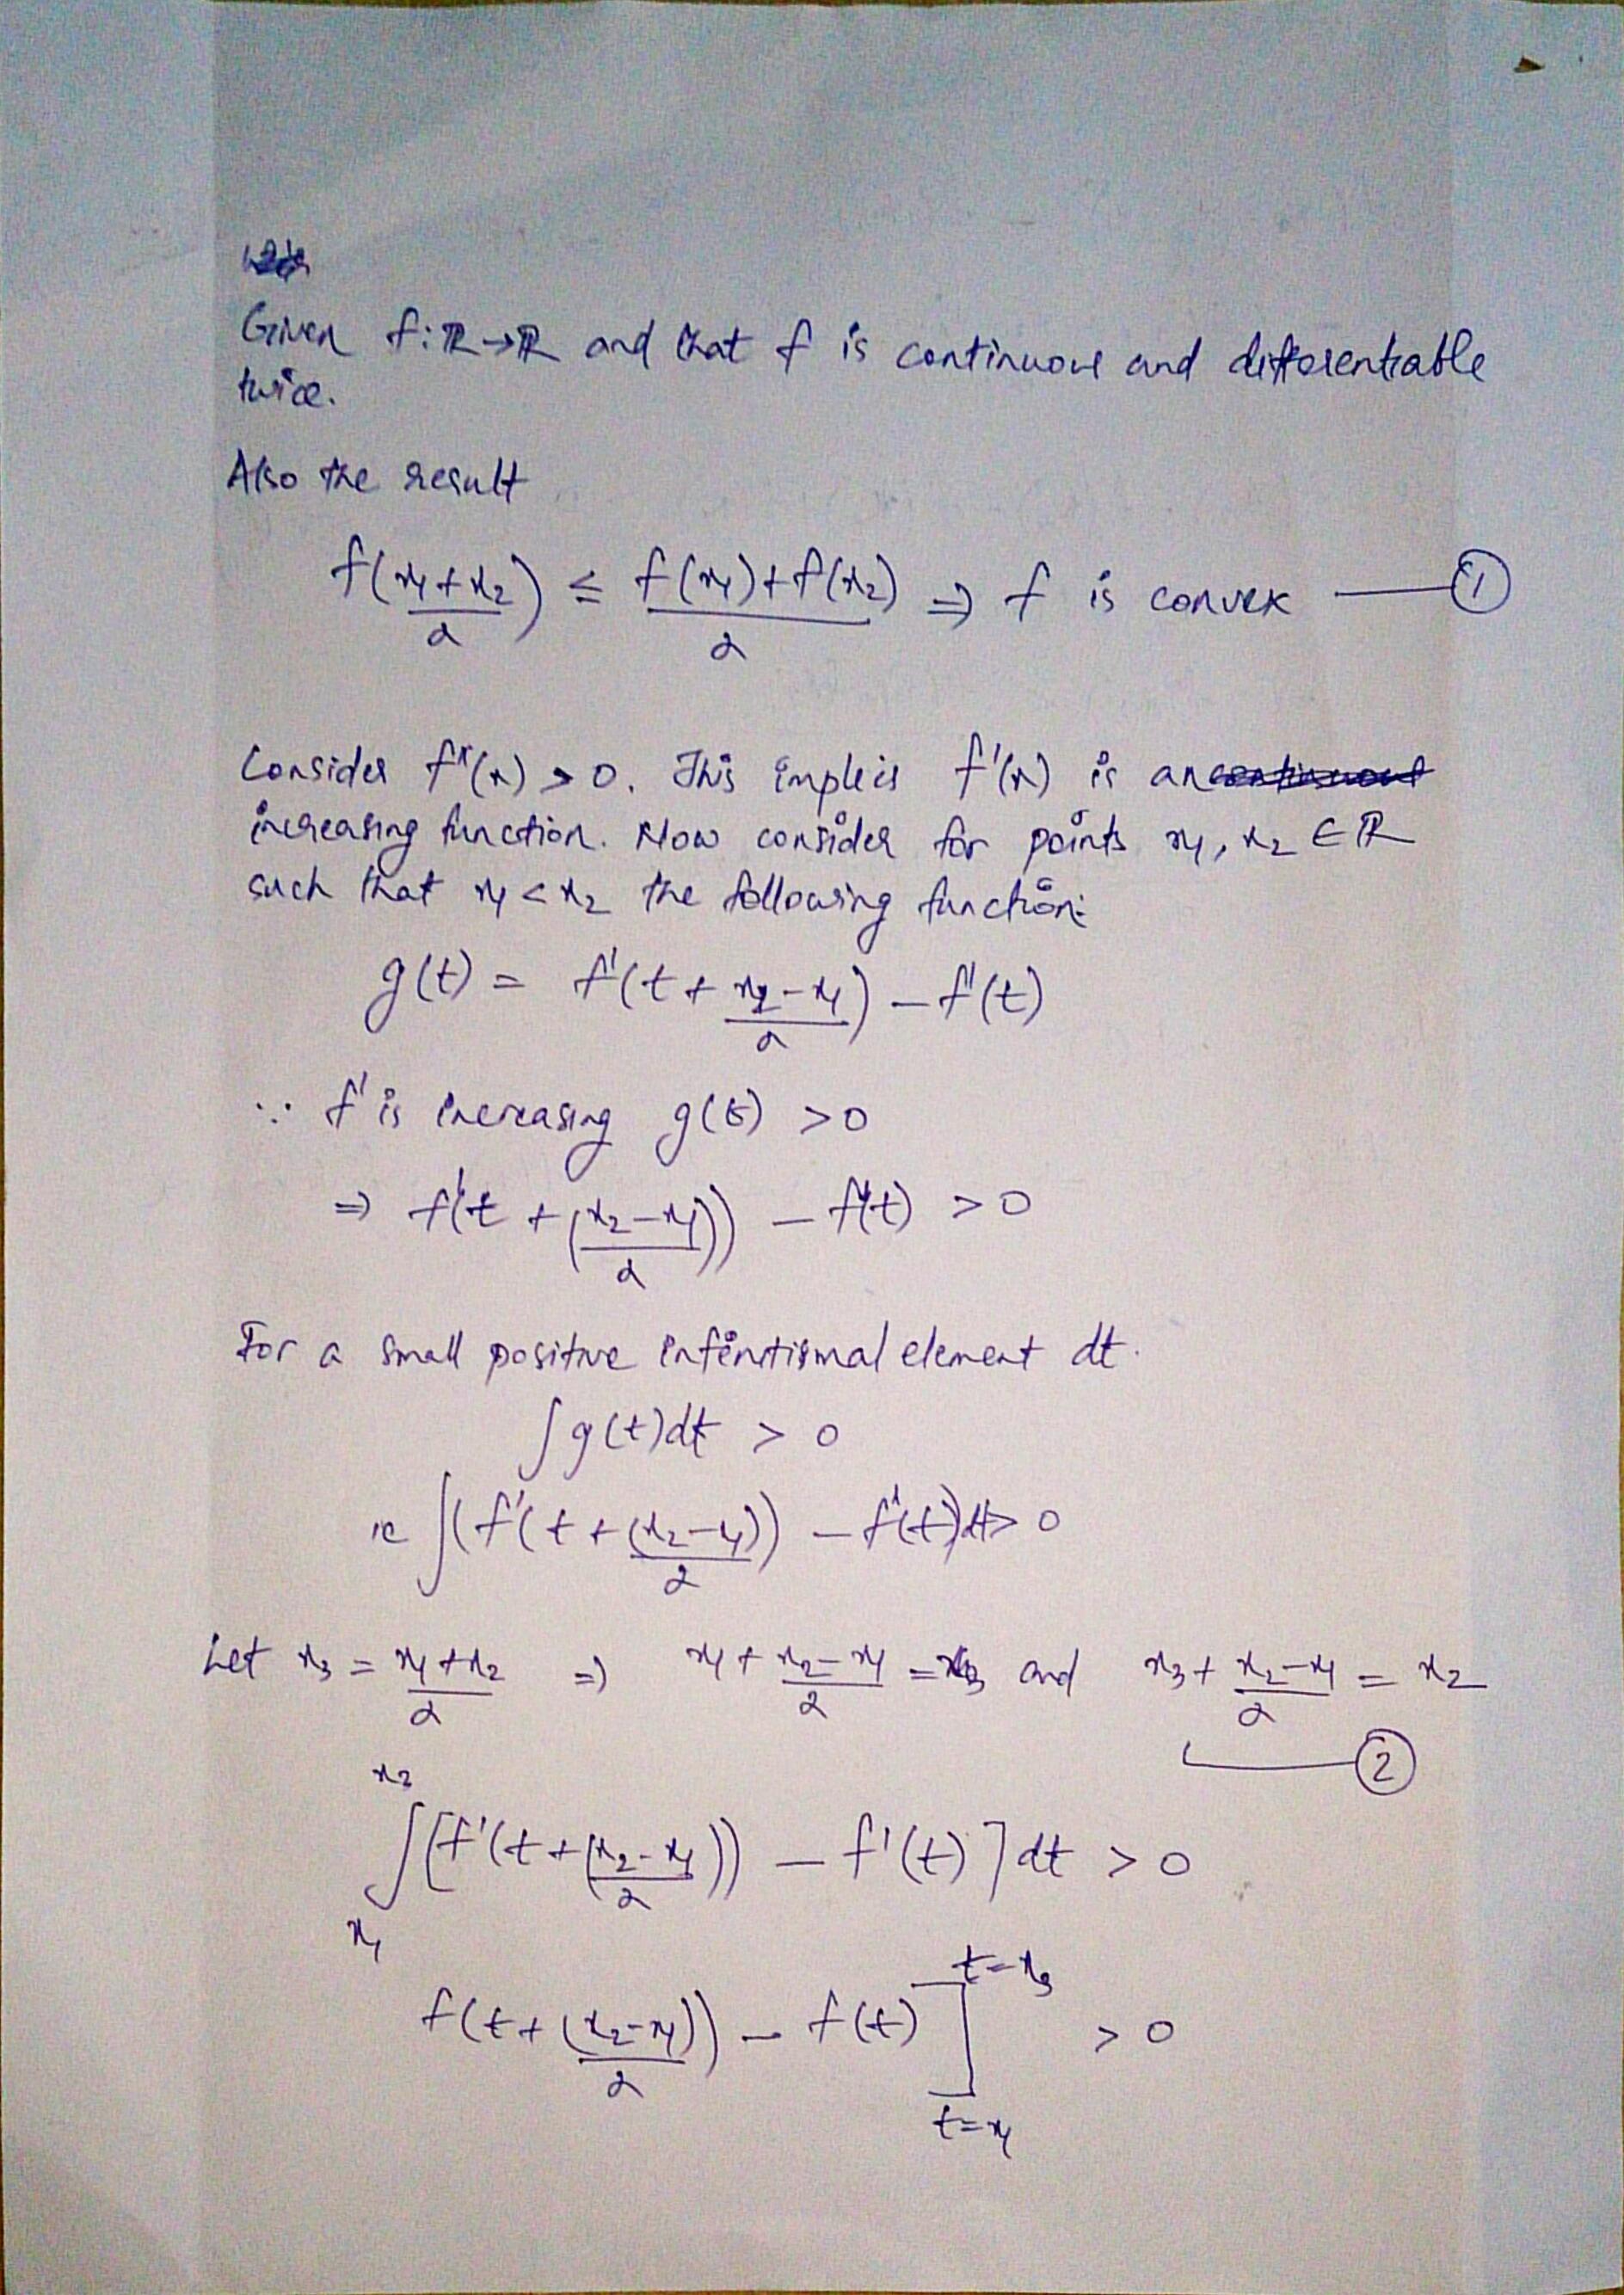 Given f:ℝ→ℝ and that f is continuous and differentiable
twice.
Also the result
f((x₁+x₂)/2) ≤ (f(x₁)+f(x₂))/2 ⇒ f is convex —— ①
Consider f''(x) > 0. This implies f'(x) is an
increasing function. Now consider for points x₁, x₂ ∈ ℝ
such that x₁ < x₂ the following function:
g(t) = f'(t + (x₂-x₁)/2) - f'(t)
∵ f' is increasing g(t) > 0
⇒ f'(t + (x₂-x₁)/2) - f'(t) > 0
For a small positive infinitismal element dt.
∫g(t)dt > 0
ie ∫(f'(t + (x₂-x₁)/2) - f'(t))dt > 0
Let x₃ = (x₁+x₂)/2 ⇒ x₁ + (x₂-x₁)/2 = x₃ and x₃ + (x₂-x₁)/2 = x₂
—— ②
∫[f'(t + (x₂-x₁)/2) - f'(t)]dt > 0
f(t + (x₂-x₁)/2) - f(t) ]_{t=x₁}^{t=x₃} > 0